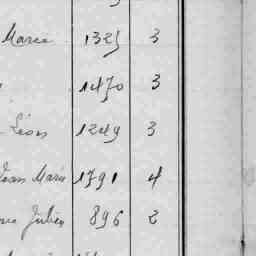 Marie 1325 3
1470 3
Léon 1249 3
Jean Marie 1791 4
Julien 896 2